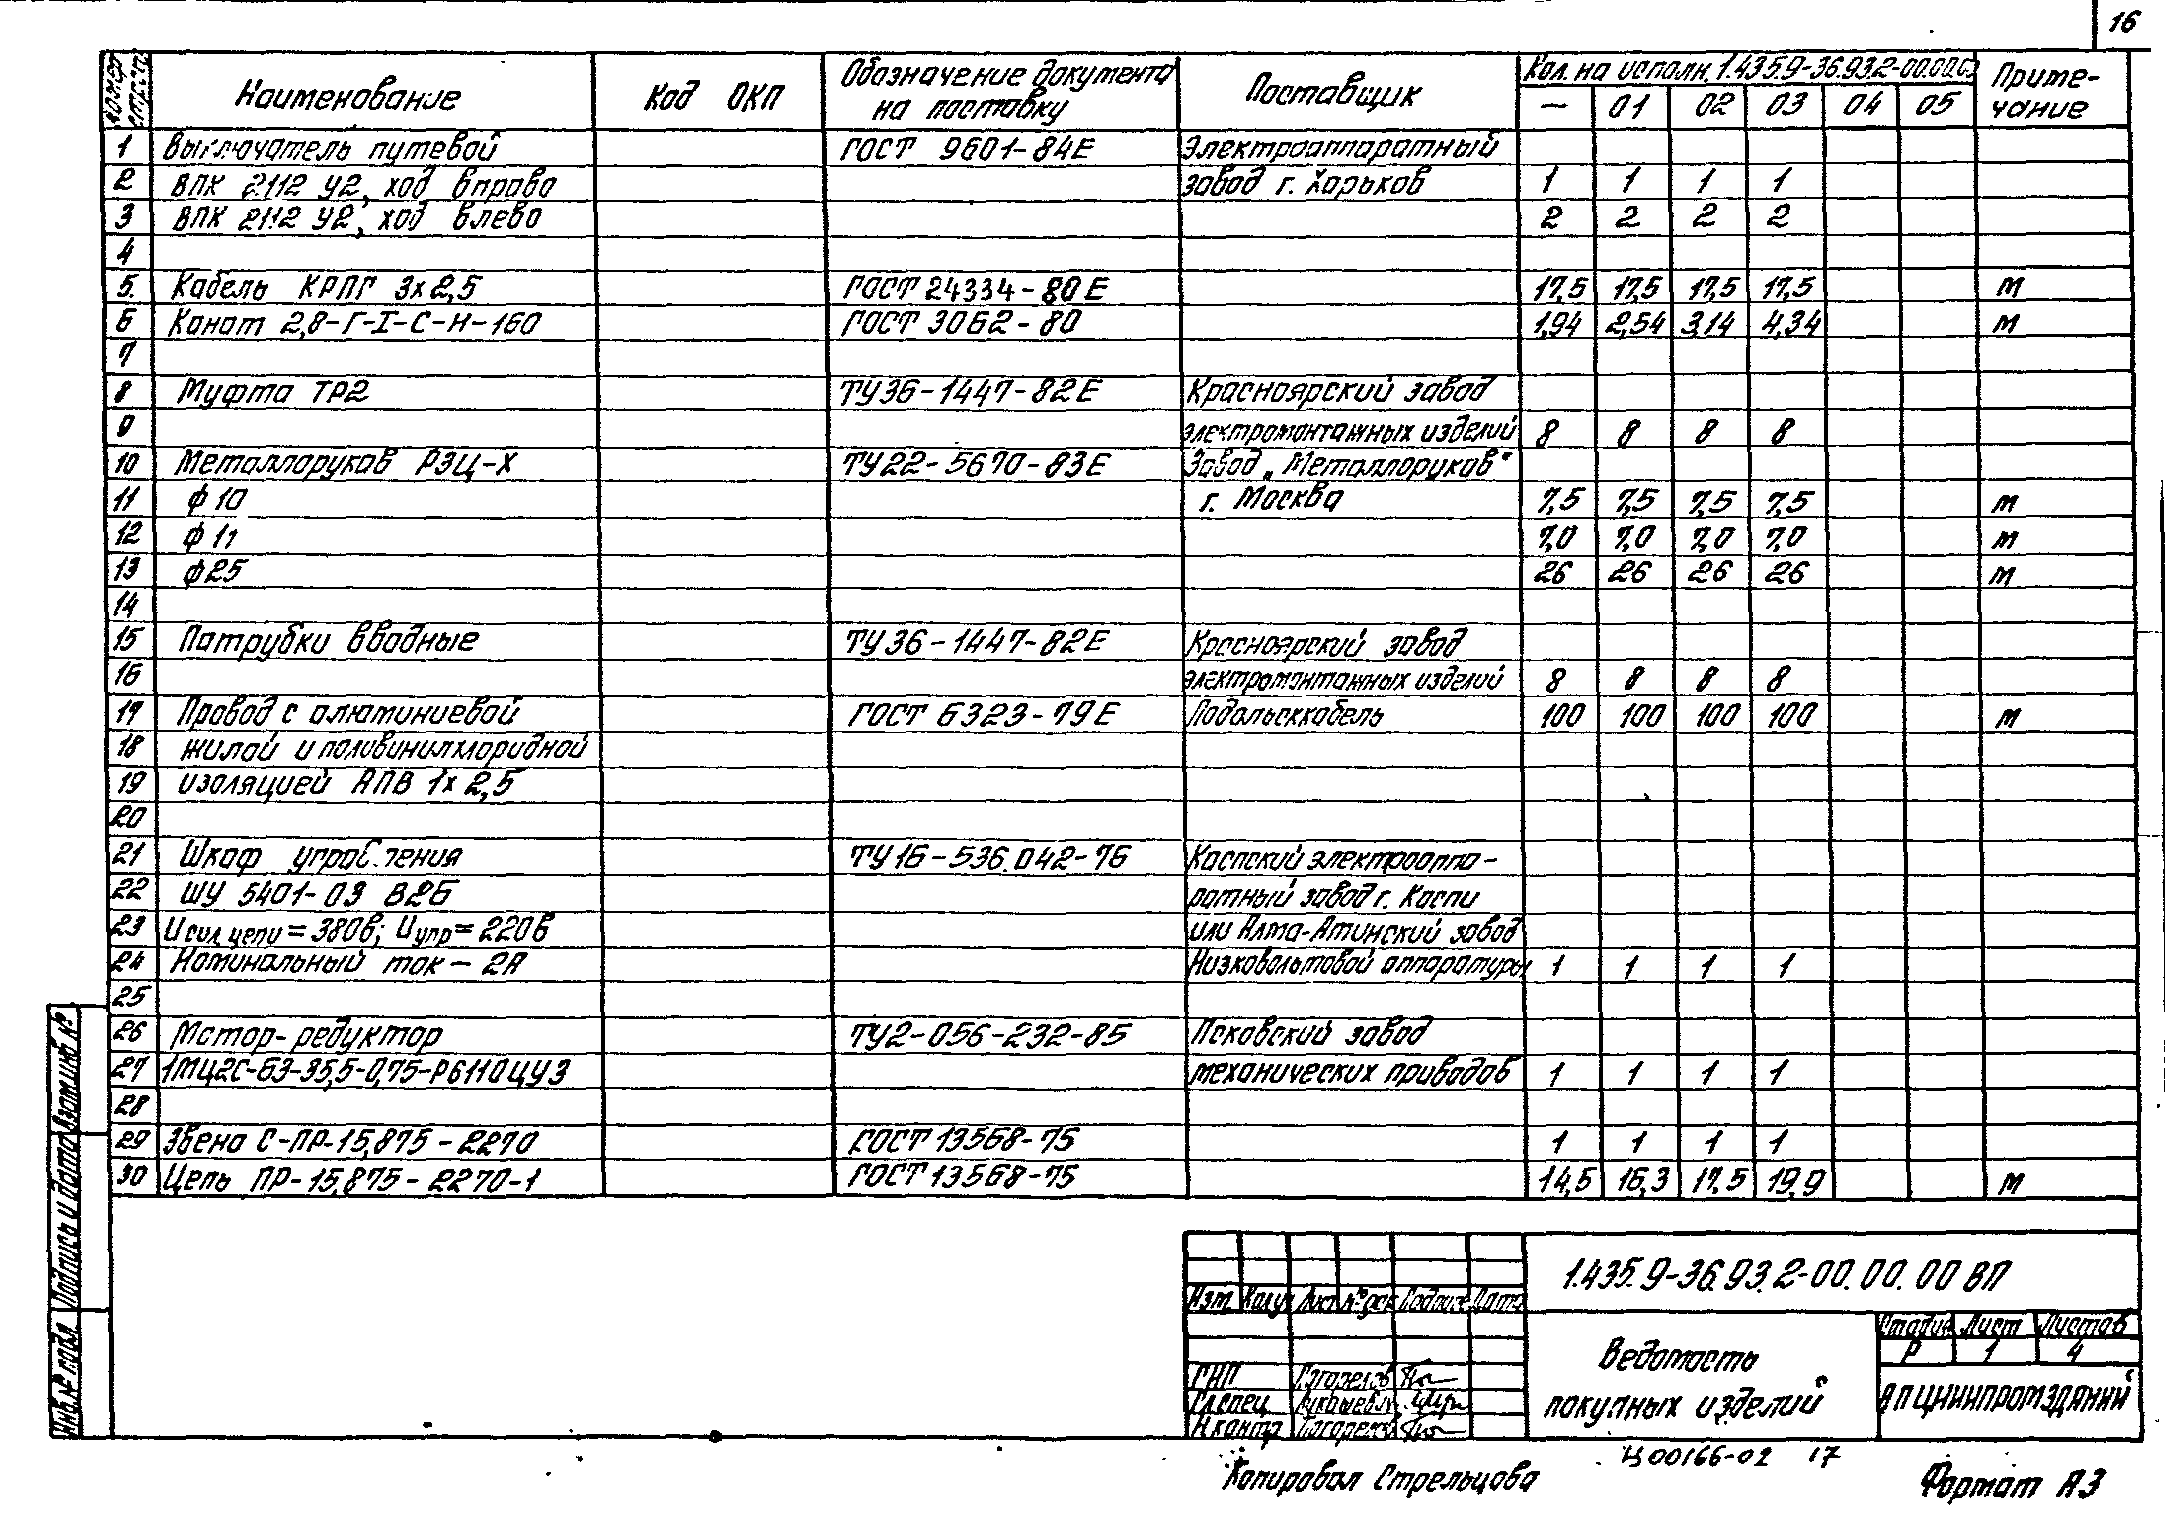 16
№ строк Наименование Код ОКП Обозначение документа на поставку Поставщик Кол. на исполн. 1.435.9-36.93.2-00.00.0 Приме-чание
— 01 02 03 04 05
1 Выключатель путевой ГОСТ 9601-84Е Электроаппаратный
2 ВПК 2112 У2, ход вправо завод г. Харьков 1 1 1 1
3 ВПК 2112 У2, ход влево 2 2 2 2
4
5. Кабель КРПГ 3х2,5 ГОСТ 24334-80Е 17,5 17,5 17,5 17,5 м
6 Канат 2,8-Г-I-С-Н-160 ГОСТ 3062-80 1,94 2,54 3,14 4,34 м
7
8 Муфта ТР2 ТУ36-1447-82Е Красноярский завод
9 электромонтажных изделий 8 8 8 8
10 Металлорукав РЗЦ-Х ТУ22-5670-83Е Завод „Металлорукав"
11 ф10 г. Москва 7,5 7,5 7,5 7,5 м
12 ф11 7,0 7,0 7,0 7,0 м
13 ф25 26 26 26 26 м
14
15 Патрубки вводные ТУ36-1447-82Е Красноярский завод
16 электромонтажных изделий 8 8 8 8
17 Провод с алюминиевой ГОСТ 6323-79Е Подольсккабель 100 100 100 100 м
18 жилой и поливинилхлоридной
19 изоляцией АПВ 1х2,5
20
21 Шкаф управления ТУ16-536.042-76 Каспский электроаппа-
22 ШУ 5401-03 В2Б ратный завод г. Каспи
23 Uсил.цепи = 380в; Uупр = 220в или Алма-Атинский завод
24 Номинальный ток - 2А Низковольтовой аппаратуры 1 1 1 1
25
26 Мотор-редуктор ТУ2-056-232-85 Псковский завод
27 1МЦ2С-63-35,5-0,75-Р6110ЦУ3 механических приводов 1 1 1 1
28
29 Звено С-ПР-15,875-2270 ГОСТ 13568-75 1 1 1 1
30 Цепь ПР-15,875-2270-1 ГОСТ 13568-75 14,5 16,3 17,5 19,9 м
Инв.№ подл. Подпись и дата Взам.инв №
1.435.9-36.93.2-00.00.00 ВП
Изм. Кол.уч Лист №док Подпись Дата
Ведомость
покупных изделий
Стадия Лист Листов
Р 1 4
ГИП
Гл.спец
Н.контр
ЦНИИПРОМЗДАНИЙ
Ц00166-02 17
Копировал Стрельцова
Формат А3